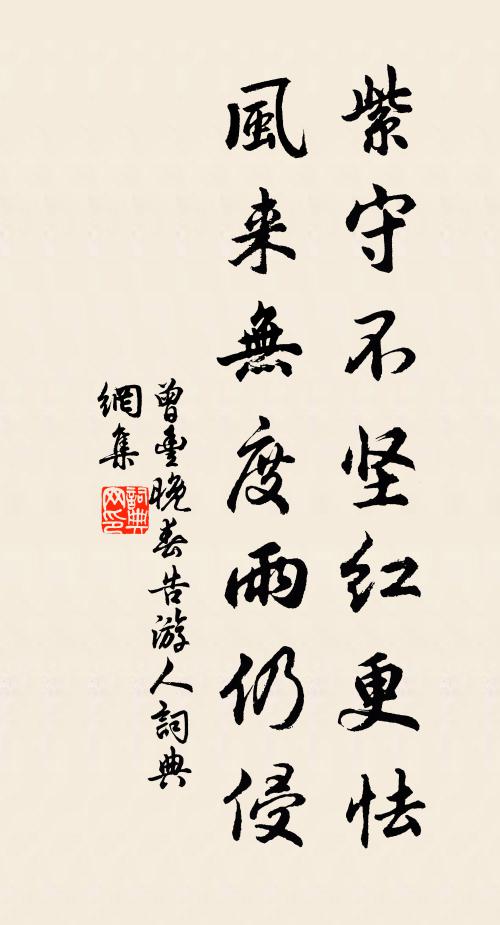 紫守不坚红更怯
風来無度雨仍侵
曾豐晚春告游人詞典
網集
詞典網印